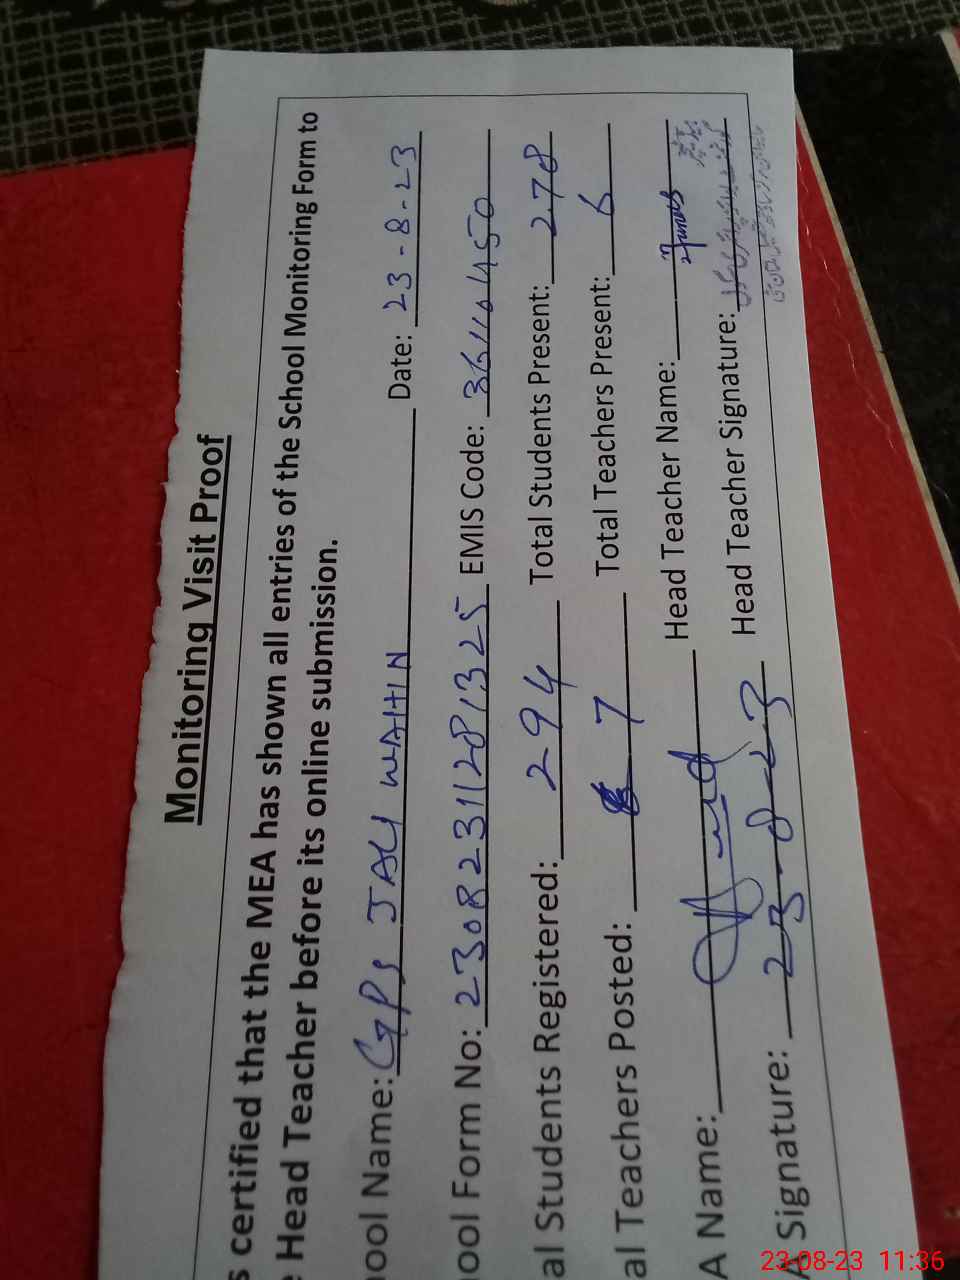 Monitoring Visit Proof
s certified that the MEA has shown all entries of the School Monitoring Form to
e Head Teacher before its online submission.
ool Name: GPS JALI WAHIN Date: 23-8-23
ool Form No: 23082311281325 EMIS Code: 36110450
al Students Registered: 294 Total Students Present: 278
al Teachers Posted: 7 Total Teachers Present: 6
A Name: Head Teacher Name:
A Signature: 23-8-23 Head Teacher Signature:
23-08-23 11:36